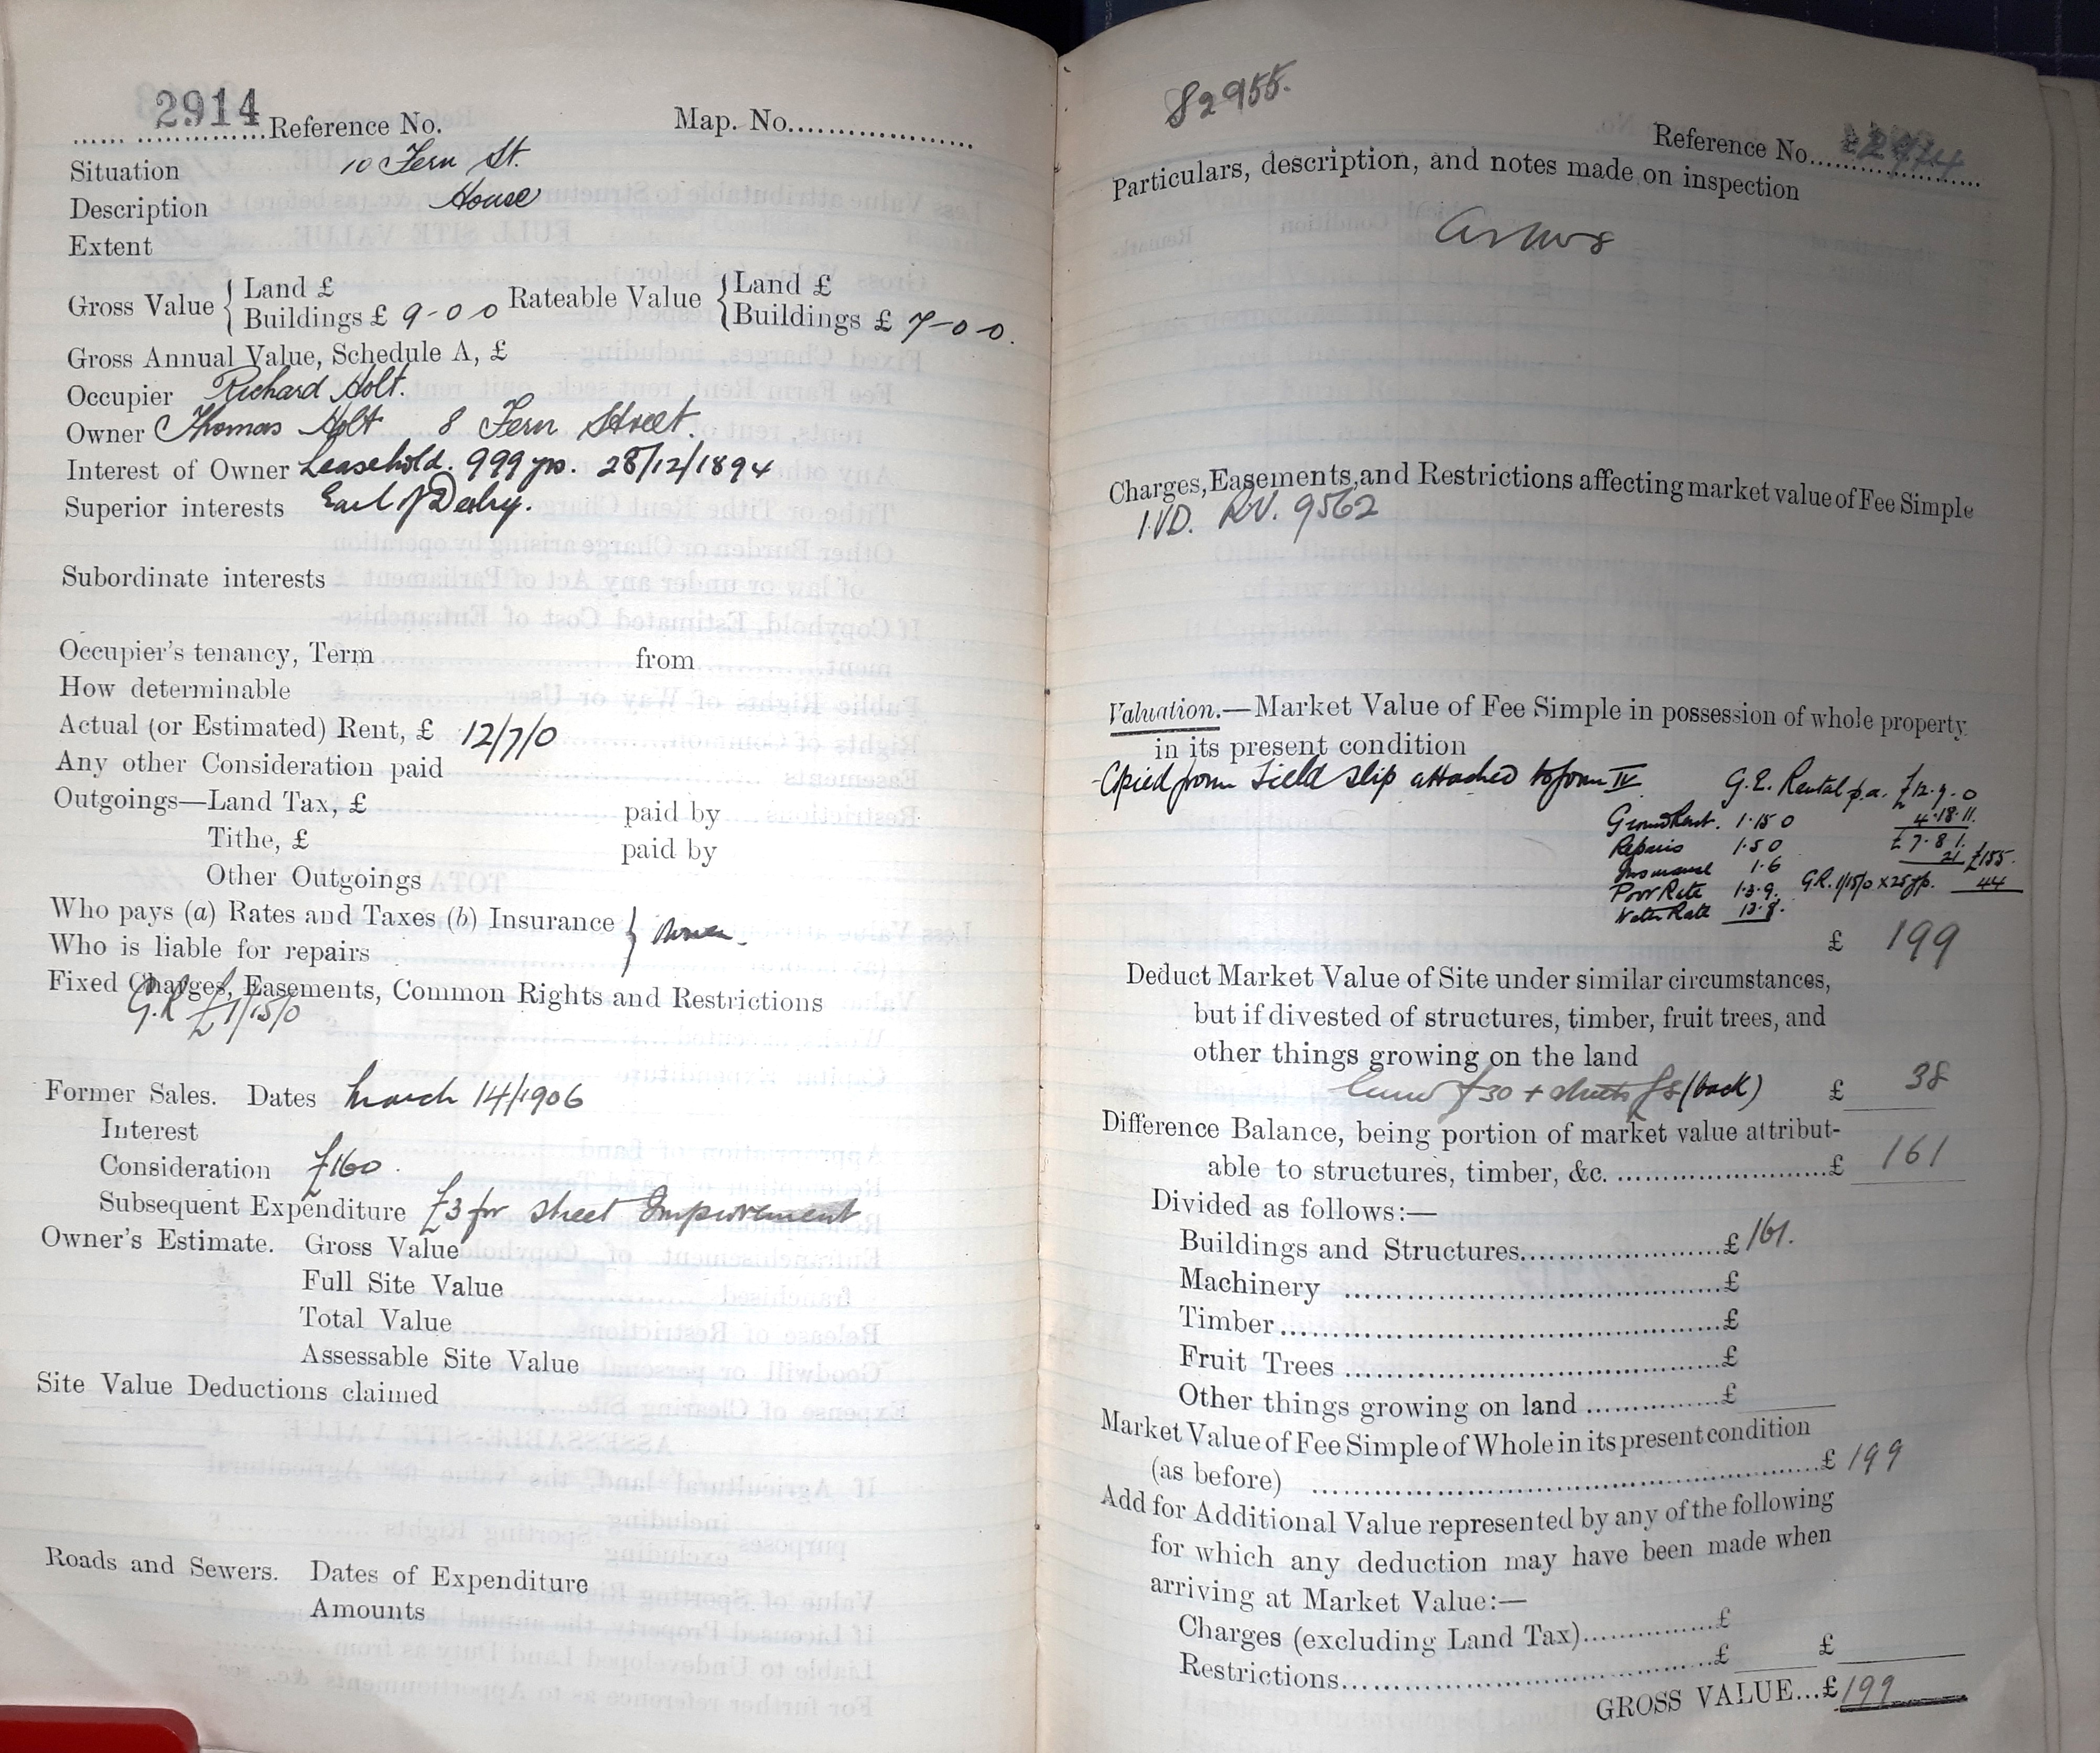 2914 Reference No. Map. No.
Situation 10 Fern St.
Description House
Extent
Gross Value { Land £ Rateable Value { Land £
Buildings £ 9-0 0 Buildings £ 7-0 0.
Gross Annual Value, Schedule A, £
Occupier Richard Holt.
Owner Thomas Holt 8 Fern Street.
Interest of Owner Leasehold. 999 yrs. 28/12/1894
Superior interests Earl of Derby.
Subordinate interests
Occupier's tenancy, Term from
How determinable
Actual (or Estimated) Rent, £ 12/7/0
Any other Consideration paid
Outgoings—Land Tax, £ paid by
Tithe, £ paid by
Other Outgoings
Who pays (a) Rates and Taxes (b) Insurance } Owner.
Who is liable for repairs
Fixed Charges, Easements, Common Rights and Restrictions
G.R £1/15/0
Former Sales. Dates March 14/1906
Interest
Consideration £160.
Subsequent Expenditure £3 for street Improvement
Owner's Estimate. Gross Value
Full Site Value
Total Value
Assessable Site Value
Site Value Deductions claimed
Roads and Sewers. Dates of Expenditure
Amounts
82955.
Reference No. 2914
Particulars, description, and notes made on inspection
Charges, Easements, and Restrictions affecting market value of Fee Simple
I.VD. RV. 9562
Valuation.—Market Value of Fee Simple in possession of whole property
in its present condition
Copied from Field slip attached to form IV G.E. Rental p.a. £12.7.0
Ground Rent. 1.15 0 4.18.11.
Repairs 1.5 0 £7.8 1.
Insurance 1.6 21 £155.
Poor Rate 1.3.9. G.R. 1/15/0 x 25 yp. 44
Water Rate 13.8.
£ 199
Deduct Market Value of Site under similar circumstances,
but if divested of structures, timber, fruit trees, and
other things growing on the land
land £30 + streets £8 (back) £ 38
Difference Balance, being portion of market value attribut-
able to structures, timber, &c. £ 161
Divided as follows:—
Buildings and Structures £ 161.
Machinery £
Timber £
Fruit Trees £
Other things growing on land £
Market Value of Fee Simple of Whole in its present condition
(as before) £ 199
Add for Additional Value represented by any of the following
for which any deduction may have been made when
arriving at Market Value:—
Charges (excluding Land Tax) £
Restrictions £ £
GROSS VALUE...£ 199